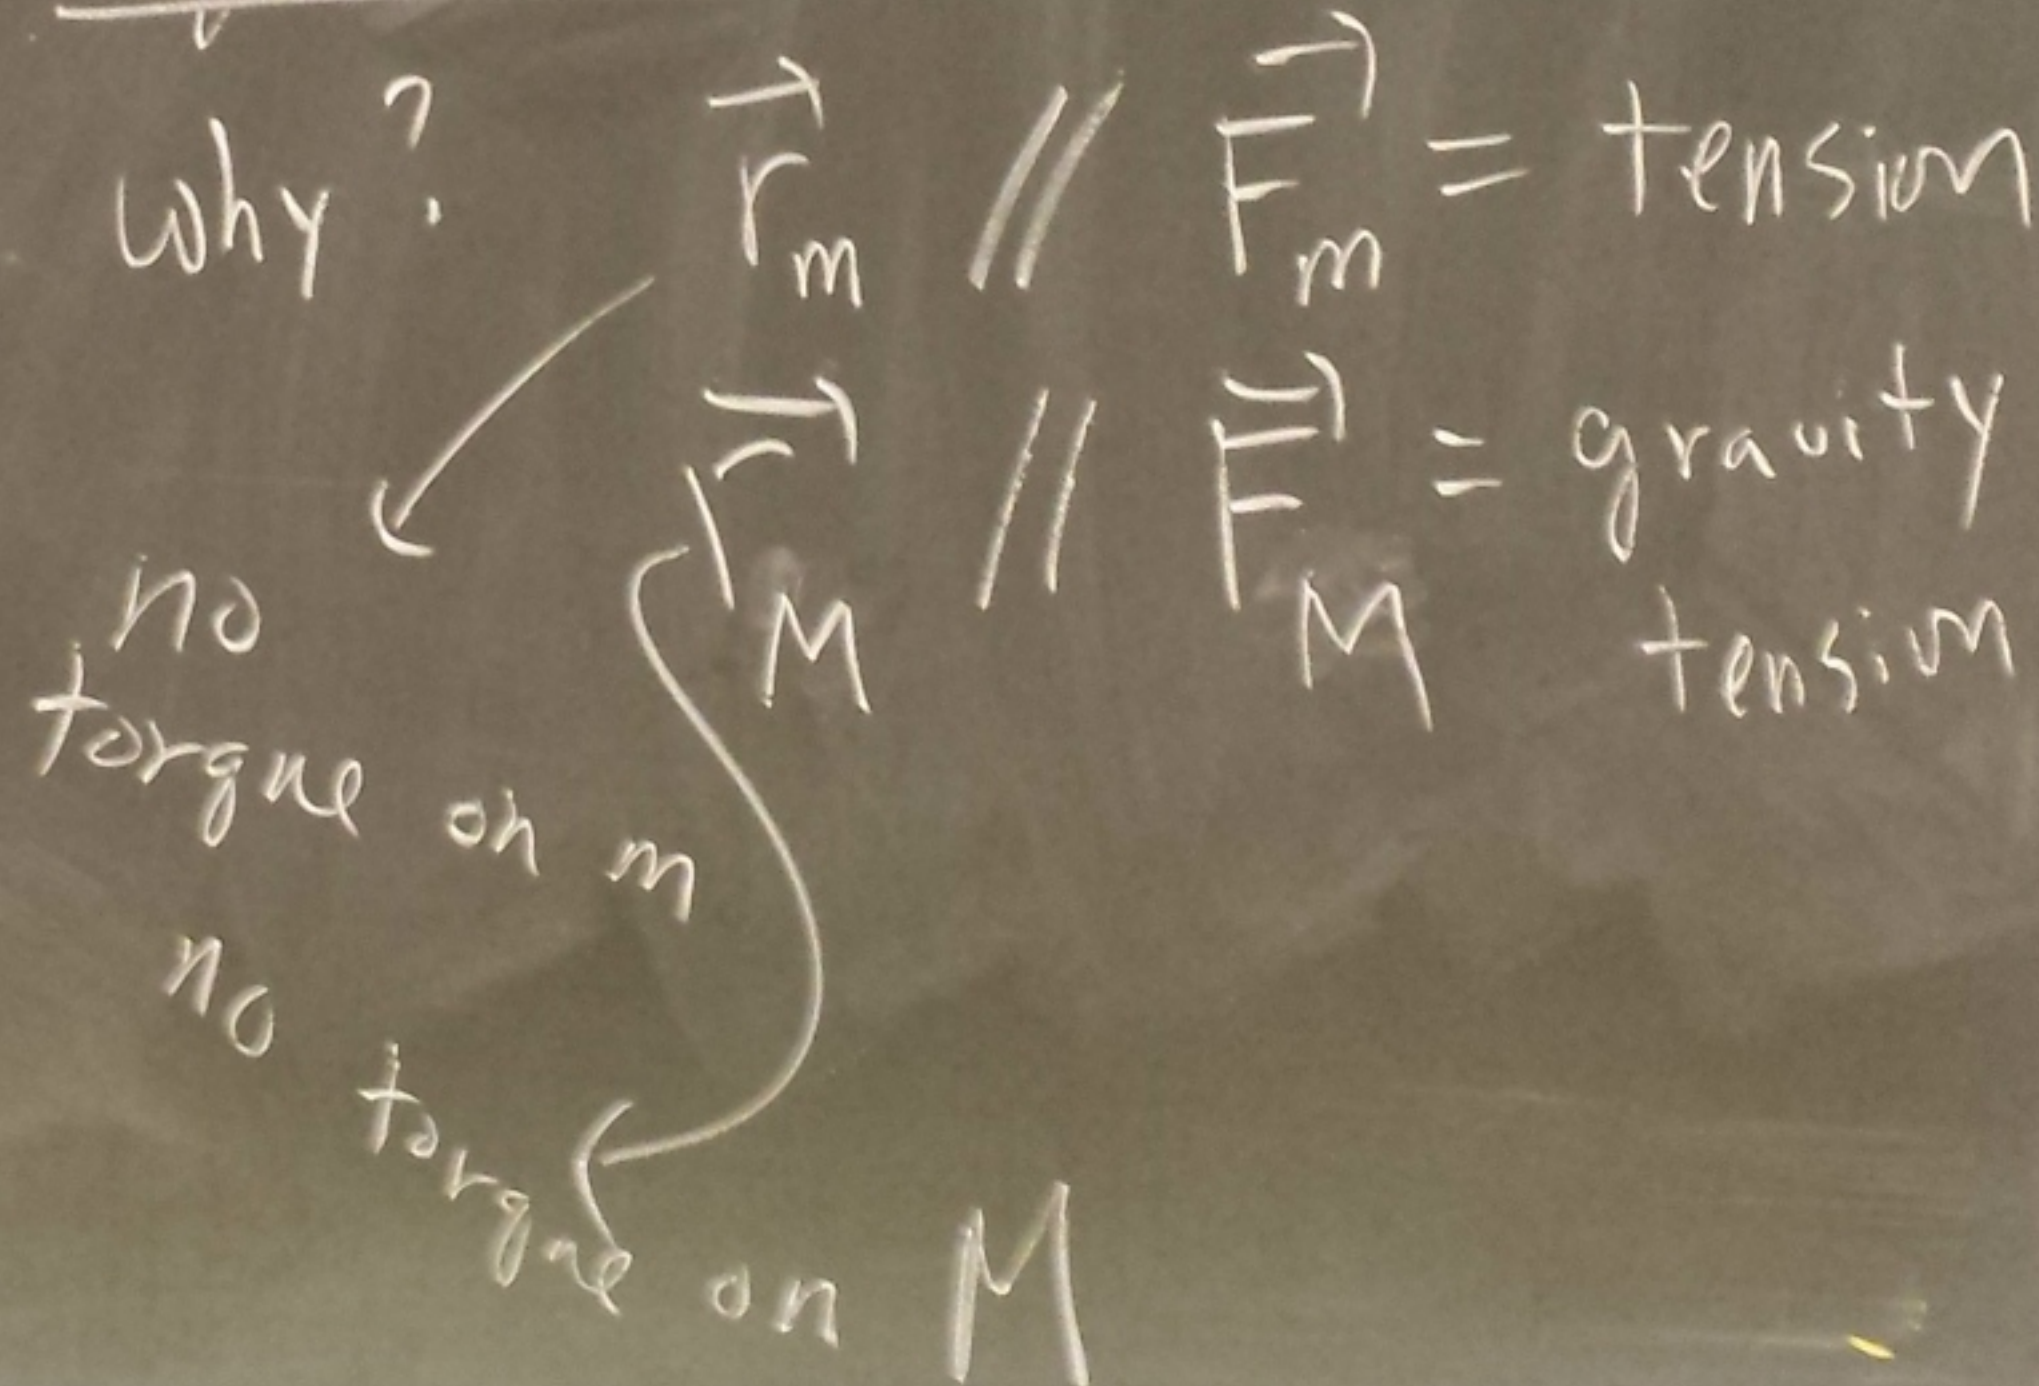 why? r⃗m // F⃗m = tension
r⃗M // F⃗M = gravity
tension
no
torque on m
no
torque on M